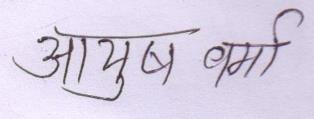 आयुष वर्मा